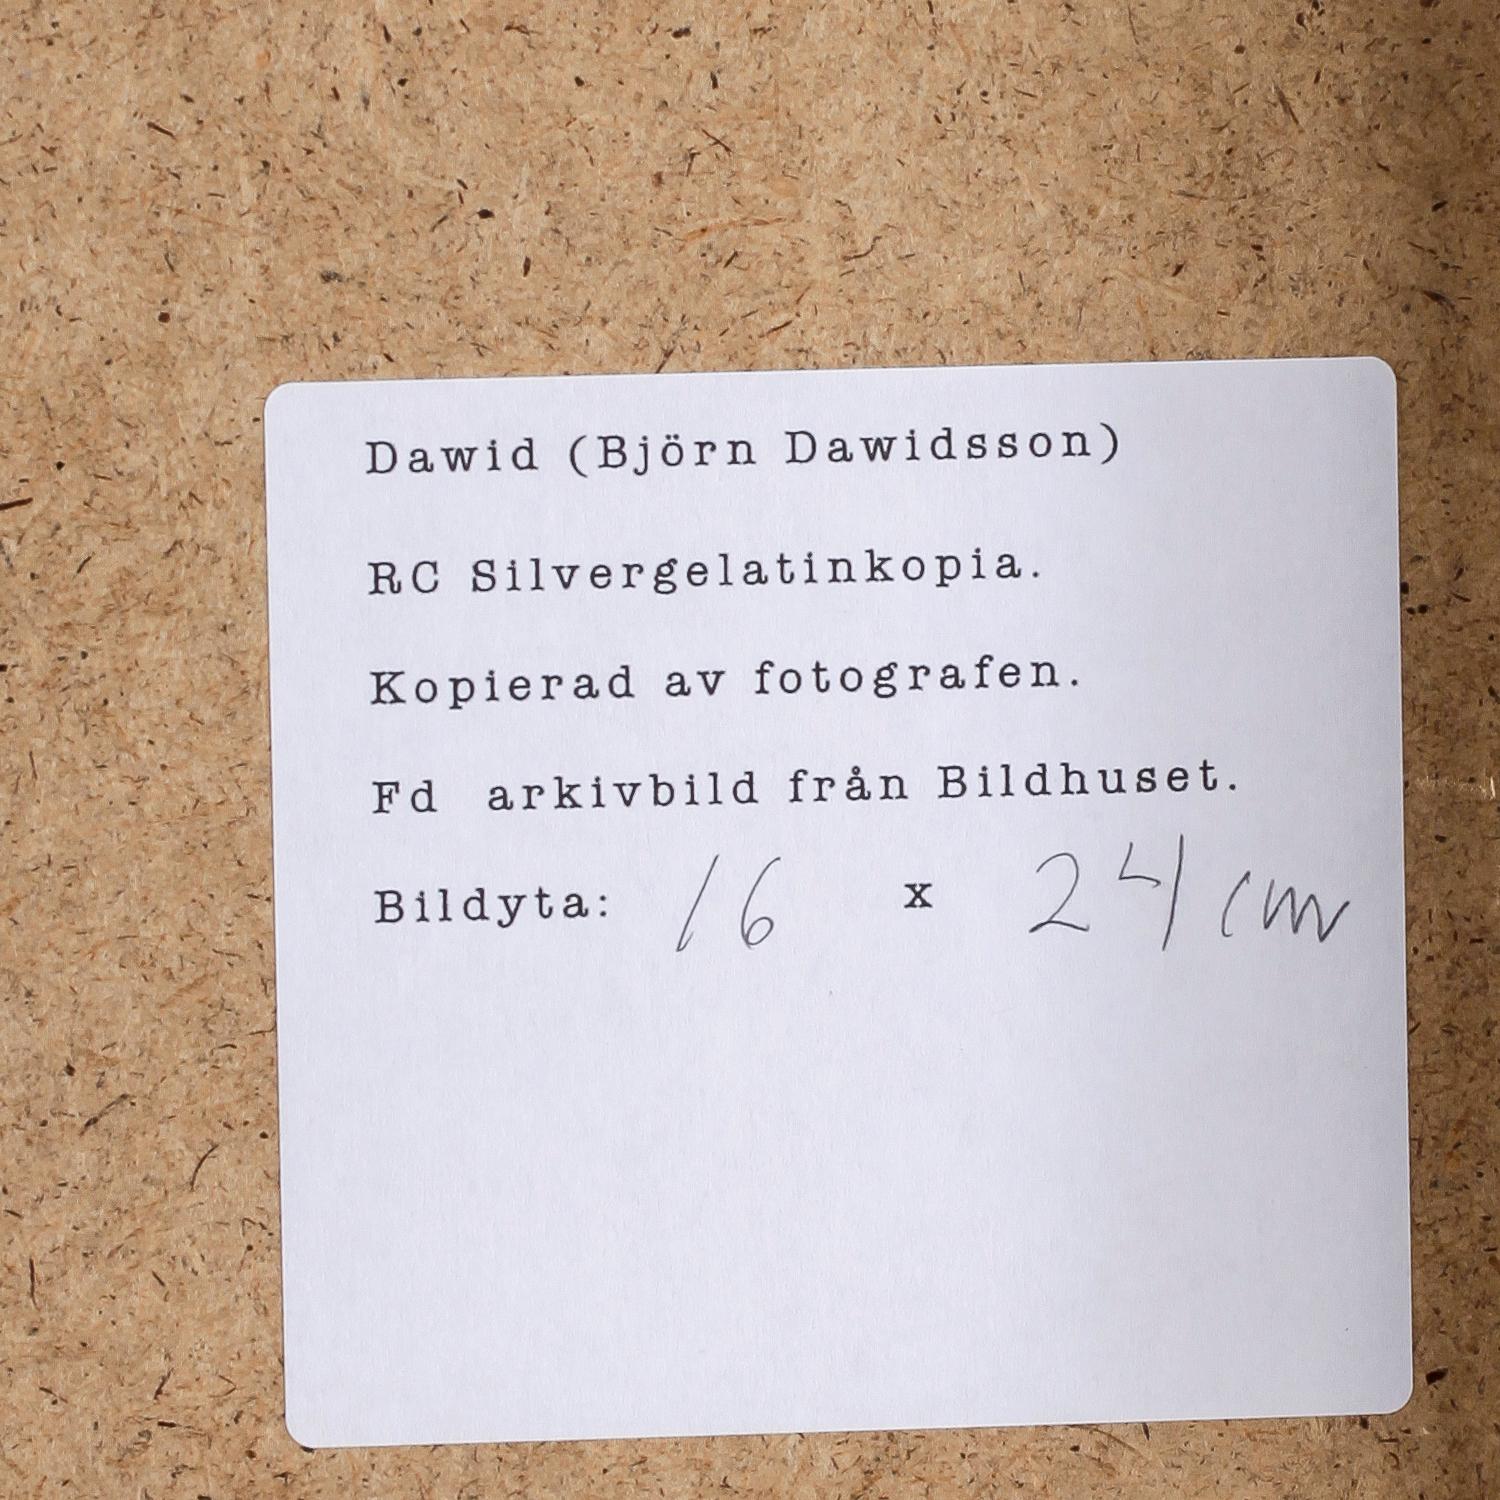 Dawid (Björn Dawidsson)
RC Silvergelatinkopia.
Kopierad av fotografen.
Fd arkivbild från Bildhuset.
Bildyta: 16 x 24 cm